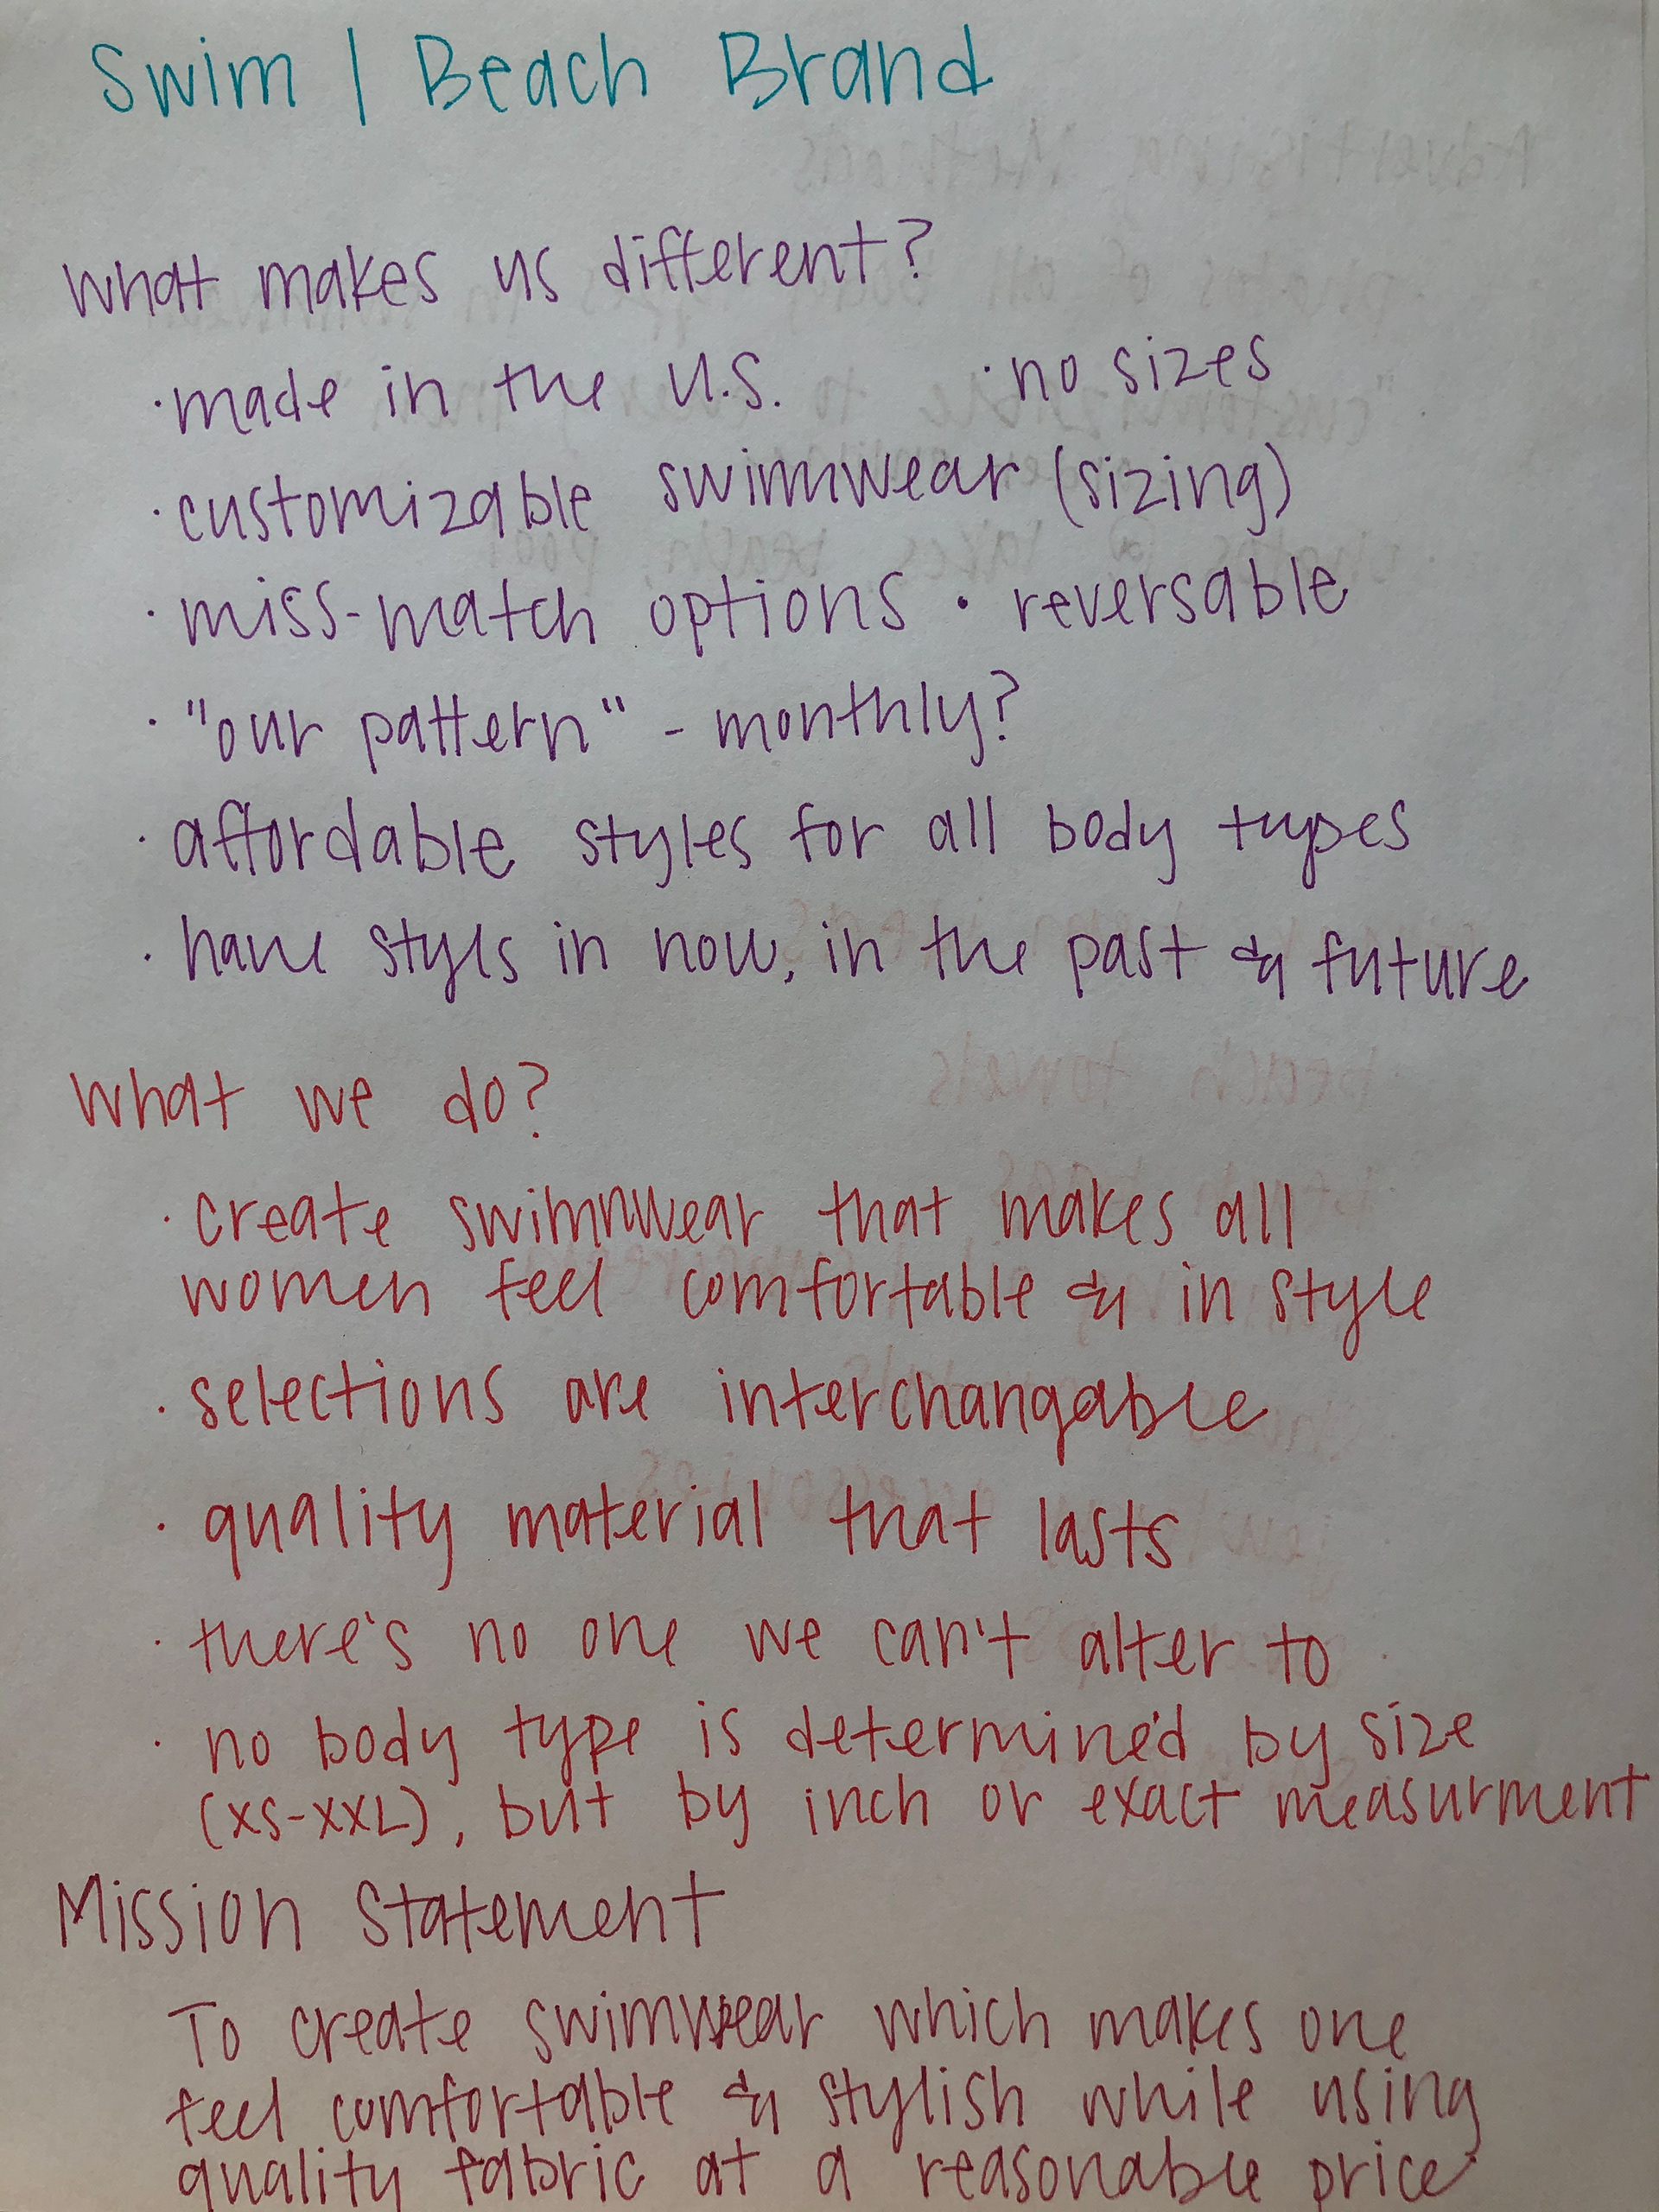 Swim | Beach Brand
What makes us different?
· made in the U.S. · no sizes
· customizable swimwear (sizing)
· miss-match options · reversable
· "our pattern" - monthly?
· affordable styles for all body types
· have styls in now, in the past & future
What we do?
· create swimwear that makes all
women feel comfortable & in style
· selections are interchangable
· quality material that lasts
· there's no one we can't alter to
· no body type is determined by size
(XS-XXL), but by inch or exact measurment
Mission Statement
To create swimwear which makes one
feel comfortable & stylish while using
quality fabric at a reasonable price